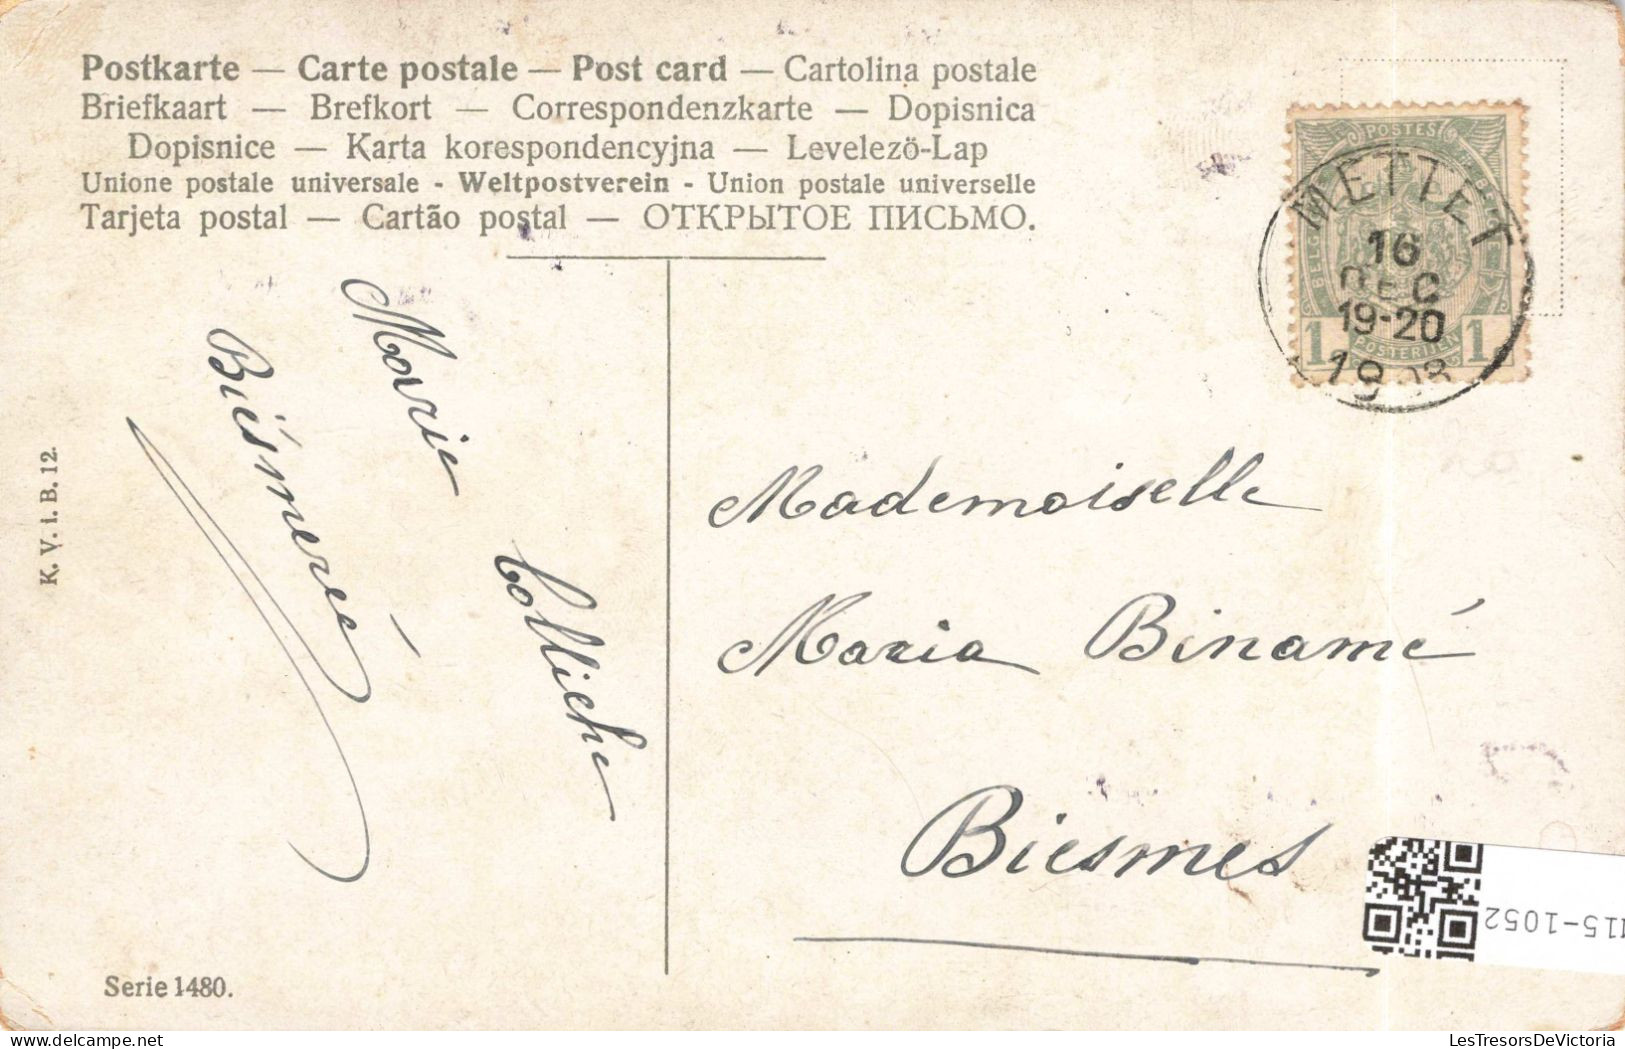 Postkarte — Carte postale — Post card — Cartolina postale
Briefkaart — Brefkort — Correspondenzkarte — Dopisnica
Dopisnice — Karta korespondencyjna — Levelezö-Lap
Unione postale universale - Weltpostverein - Union postale universelle
Tarjeta postal — Cartão postal — ОТКРЫТОЕ ПИСЬМО.
POSTES
METTET
16
DEC
19-20
19 08
1 POSTERIJEN 1
Marie Colliche
Biesmerée
Mademoiselle
Maria Binamé
Biesmes
K. V. i. B. 12.
Serie 1480.
115-1052
LesTresorsDeVictoria